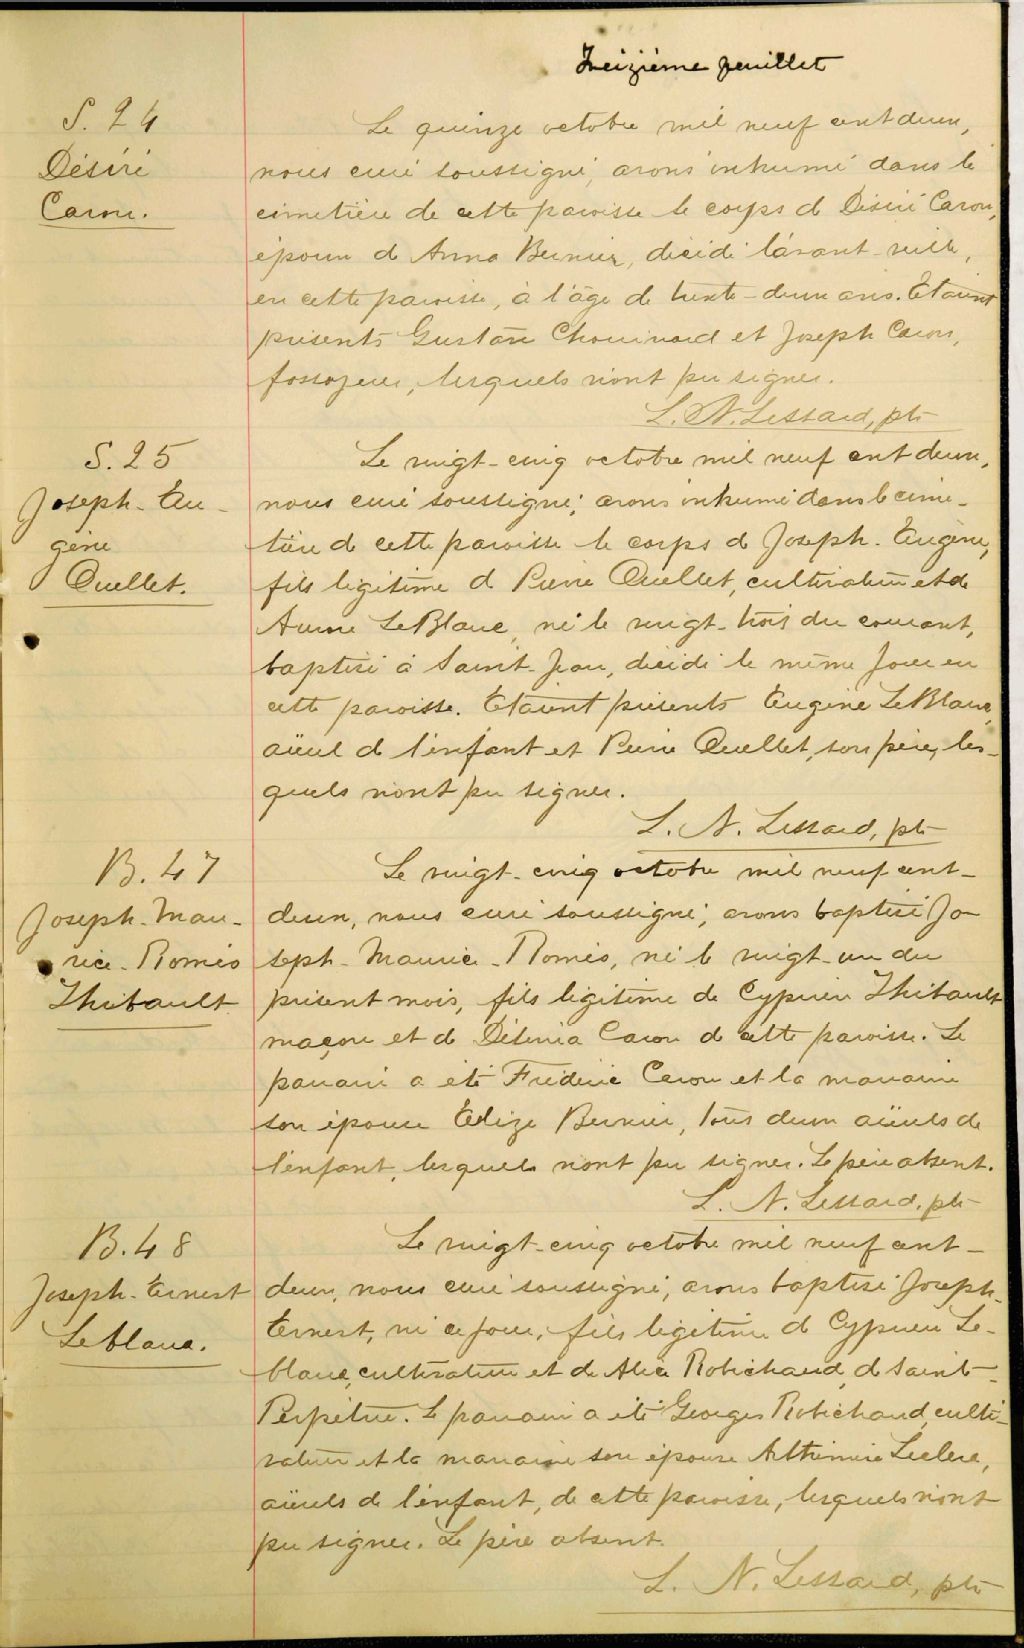 Treizième feuillet
S. 24
Désiré
Caron.
Le quinze octobre mil neuf cent deux,
nous curé soussigné, avons inhumé dans le
cimetière de cette paroisse le corps de Désiré Caron,
époux de Anna Bernier, décédé l'avant-veille,
en cette paroisse, à l'âge de trente-deux ans. Etaient
présents Gustave Chouinard et Joseph Caron,
fossoyeur, lesquels n'ont pu signer.
L. N. Lessard, ptr
S. 25
Joseph-Eu-
gène
Ouellet.
Le vingt-cinq octobre mil neuf cent deux,
nous curé soussigné, avons inhumé dans le cime-
tière de cette paroisse le corps de Joseph-Eugène,
fils légitime de Pierre Ouellet, cultivateur et de
LeBlanc, né le vingt-trois du courant,
baptisé à Saint-Jean, décédé le même jour en
cette paroisse. Etaient présents Eugène LeBlanc,
aïeul de l'enfant et Pierre Ouellet, son père, les-
quels n'ont pu signer.
L. N. Lessard, ptr
B. 47
Joseph-Mau-
rice-Roméo
Thibault
Le vingt-cinq octobre mil neuf cent-
deux, nous curé soussigné, avons baptisé Jo-
seph-Maurice-Roméo, né le vingt-un du
présent mois, fils légitime de Cyprien Thibault
maçon et de Délima Caron de cette paroisse. Le
parrain a été Frédéric Caron et la marraine
son épouse Elize Bernier, tous deux aïeuls de
l'enfant, lesquels n'ont pu signer. Le père absent.
L. N. Lessard, ptr
B. 48
Joseph-Ernest
Leblanc.
Le vingt-cinq octobre mil neuf cent-
deux, nous curé soussigné, avons baptisé Joseph-
Ernest, né ce jour, fils légitime de Cyprien Le-
blanc, cultivateur et de Alice Robichaud, de Sainte-
Perpétue. Le parrain a été Georges Robichaud, culti-
vateur et la marraine son épouse Arthémise Leclerc,
aïeuls de l'enfant, de cette paroisse, lesquels n'ont
pu signer. Le père absent.
L. N. Lessard, ptr